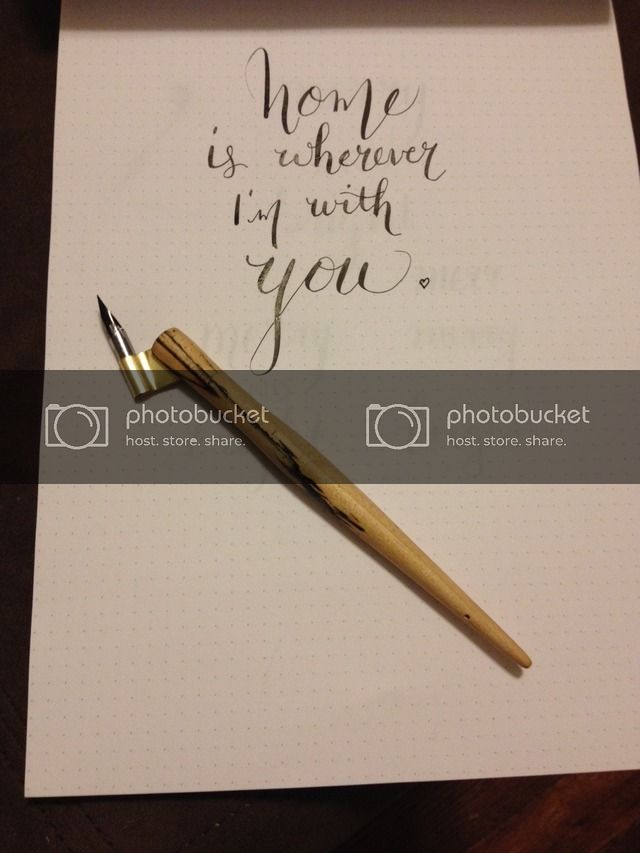 home
is wherever
I'm with
you.
photobucket
host. store. share.
photobucket
host. store. share.